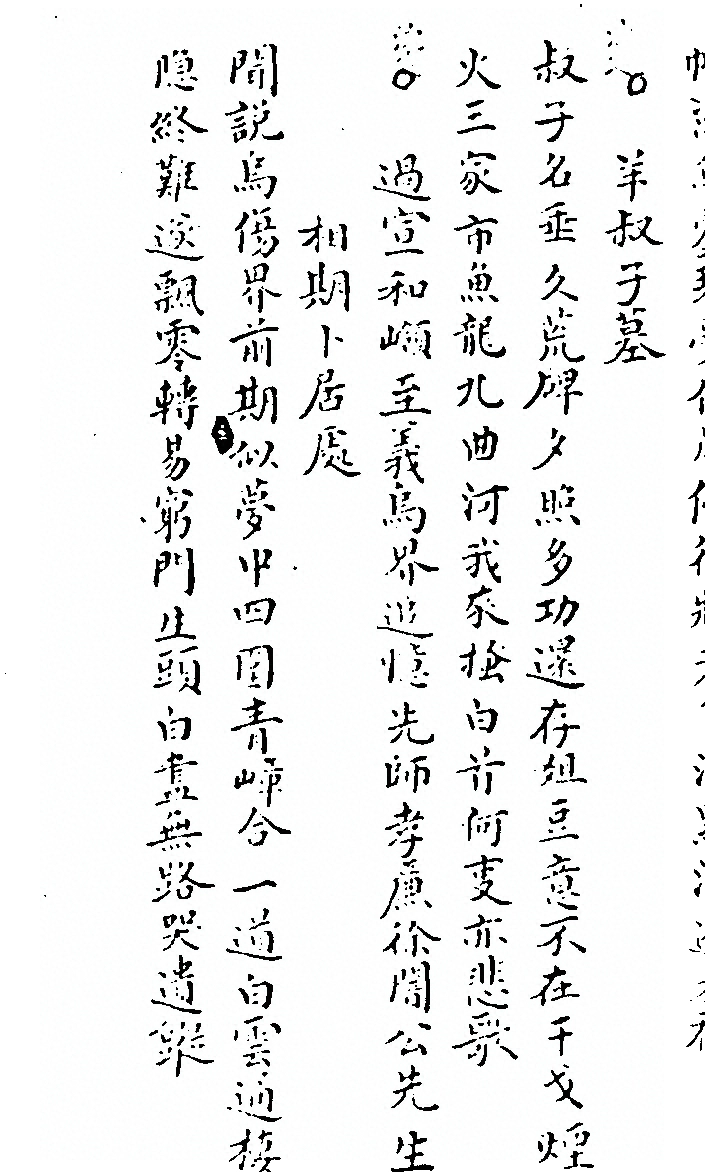 羊叔子墓
叔子名垂久荒碑夕照多功還存俎豆意不在干戈煙
火三家市魚龍九曲河我來搔白首何事亦悲歌
過宣和嶺至義烏界追憶先師孝廉徐闇公先生
相期卜居處
聞說烏傷界前期似夢中四圍青嶂合一道白雲通棲
隱終難遂飄零轉易窮門生頭白盡無路哭遺蹤